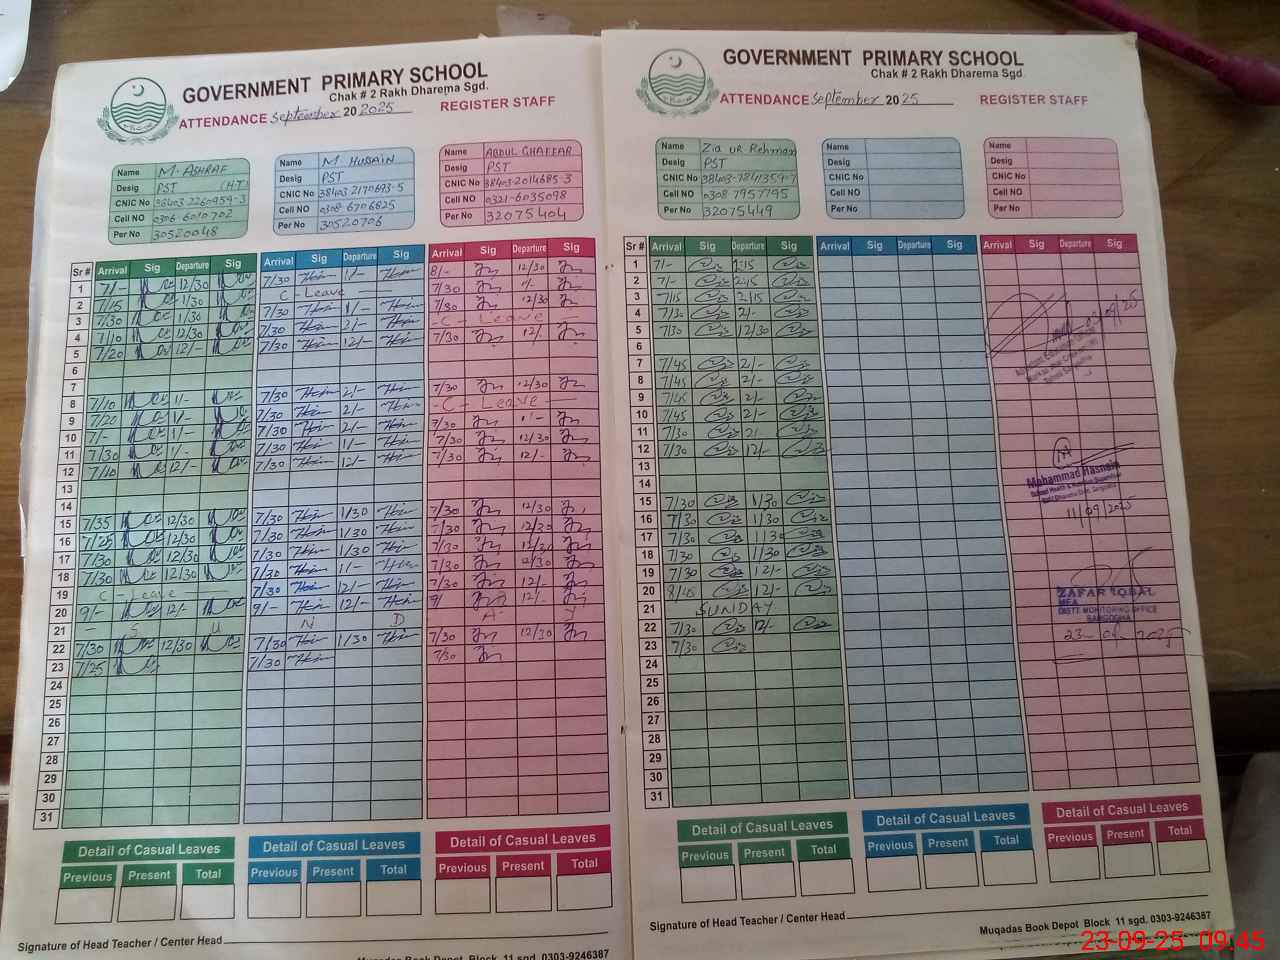 GOVERNMENT PRIMARY SCHOOL
Chak # 2 Rakh Dharema Sgd.
ATTENDANCE September 20 2025 REGISTER STAFF
Name M. ASHRAF
Desig PST (H.T)
CNIC No 38403-2260959-3
Cell NO 0306-6010702
Per No 30520048
Name M. HUSSAIN
Desig PST
CNIC No 38403-2170693-5
Cell NO 0308-6706825
Per No 30520706
Name ABDUL GHAFFAR
Desig PST
CNIC No 38403-2014685-3
Cell NO 0321-6035098
Per No 32075404
Sr # Arrival Sig Departure Sig Arrival Sig Departure Sig Arrival Sig Departure Sig
1 7/- 12/30 7/30 1/- 8/- 12/30
2 7/15 1/30 C-Leave 7/30 1/-
3 7/30 1/30 7/30 1/- 7/30 12/30
4 7/10 12/30 7/30 2/- -C-Leave-
5 7/20 12/- 7/30 12/- 7/30 12/-
6
7
8 7/10 1/- 7/30 2/- 7/30 12/30
9 7/20 1/- 7/30 2/- -C-Leave-
10 7/- 1/- 7/30 2/- 7/30 1/-
11 7/30 1/- 7/30 1/- 7/30 12/30
12 7/10 12/- 7/30 12/- 7/30 12/-
13
14
15 7/35 12/30 7/30 1/30 7/30 12/30
16 7/25 12/30 7/30 1/30 7/30 12/30
17 7/30 12/30 7/30 1/30 7/30
18 7/30 12/30 7/30 1/- 7/30 12/30
19 C-Leave 7/30 12/- 7/30 12/-
20 9/- 12/- 9/- 12/- 9/ 12/-
21 - S U N D A Y
22 7/30 12/30 7/30 1/30 7/30 12/30
23 7/25 7/30 7/30
24
25
26
27
28
29
30
31
Detail of Casual Leaves Detail of Casual Leaves Detail of Casual Leaves
Previous Present Total Previous Present Total Previous Present Total
Signature of Head Teacher / Center Head
Muqadas Book Depot Block 11 sgd. 0303-9246387
GOVERNMENT PRIMARY SCHOOL
Chak # 2 Rakh Dharema Sgd.
ATTENDANCE September 20 25 REGISTER STAFF
Name Zia UR Rehman
Desig PST
CNIC No
Cell NO 0308 7957795
Per No 32075449
Name
Desig
CNIC No
Cell NO
Per No
Name
Desig
CNIC No
Cell NO
Per No
Sr # Arrival Sig Departure Sig Arrival Sig Departure Sig Arrival Sig Departure Sig
1 7/- 2:15
2 7/- 2:15
3 7/15 2/15
4 7/30 2/-
5 7/30 12/30
6
7 7/45 2/-
8 7/45 2/-
9 7/45 2/-
10 7/45 2/-
11 7/30 2/-
12 7/30 12/-
13
14
15 7/20 1/30
16 7/30 1/30
17 7/30 1/30
18 7/30 1/30
19 7/30 12/-
20 8/45 12/-
21 SUNDAY
22 7/30 12/-
23 7/30
24
25
26
27
28
29
30
31
Mohammad Hasnain
11/09/2025
ZAFAR IQBAL
MEA
DISTT MONITORING OFFICE
SARGODHA
23-09-2025
Detail of Casual Leaves Detail of Casual Leaves Detail of Casual Leaves
Previous Present Total Previous Present Total Previous Present Total
Signature of Head Teacher / Center Head
Muqadas Book Depot Block 11 sgd. 0303-9246387
23-09-25 09:45